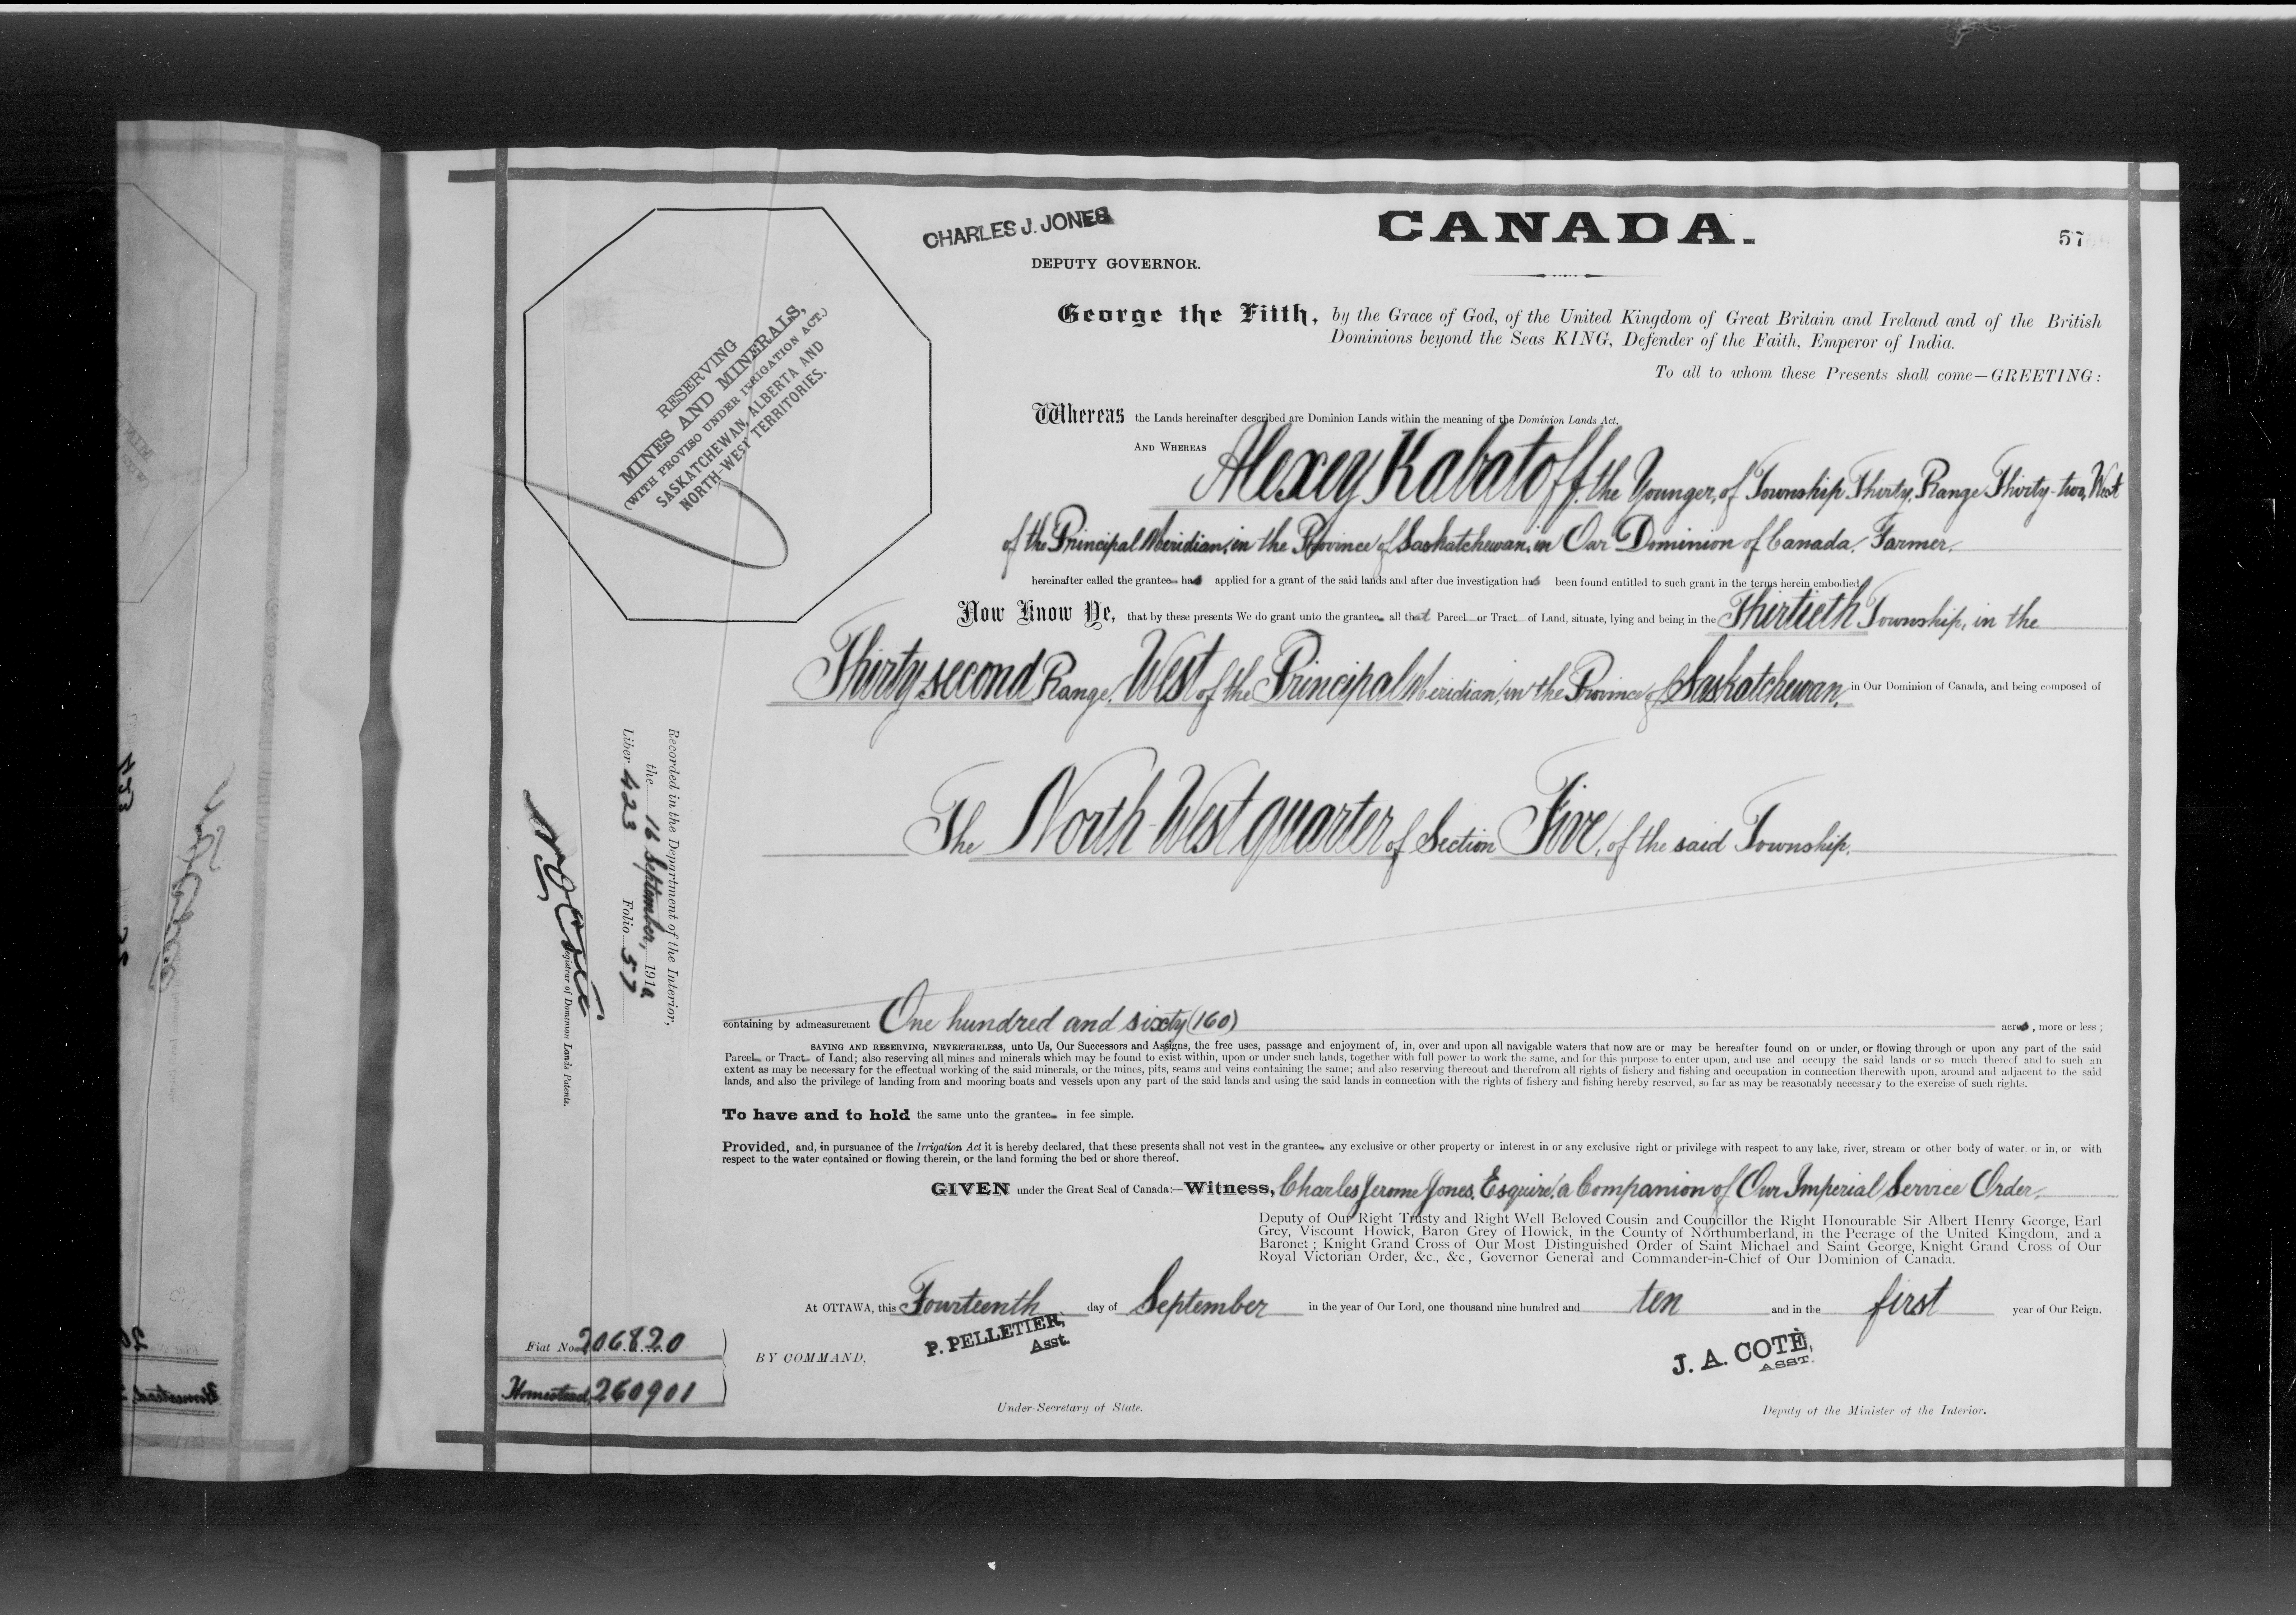 CHARLES J. JONES
DEPUTY GOVERNOR.
CANADA.
57
George the Fifth, by the Grace of God, of the United Kingdom of Great Britain and Ireland and of the British
Dominions beyond the Seas KING, Defender of the Faith, Emperor of India.
To all to whom these Presents shall come—GREETING:
RESERVING
MINES AND MINERALS,
(WITH PROVISO UNDER IRRIGATION ACT.)
SASKATCHEWAN, ALBERTA AND
NORTH-WEST TERRITORIES.
Whereas the Lands hereinafter described are Dominion Lands within the meaning of the Dominion Lands Act.
AND WHEREAS Alexey Kabatoff, the Younger, of Township Thirty, Range Thirty-two, West
of the Principal Meridian, in the Province of Saskatchewan, in Our Dominion of Canada, Farmer.
hereinafter called the grantee has applied for a grant of the said lands and after due investigation has been found entitled to such grant in the terms herein embodied.
Now Know Ye, that by these presents We do grant unto the grantee all that Parcel or Tract of Land, situate, lying and being in the Thirtieth Township, in the
Thirty second Range, West of the Principal Meridian, in the Province of Saskatchewan, in Our Dominion of Canada, and being composed of
The North West quarter of Section Five, of the said Township.
Recorded in the Department of the Interior,
the 16 September, 1910
Liber 423 Folio 57
Registrar of Dominion Lands Patents.
containing by admeasurement One hundred and sixty (160) acres, more or less;
SAVING AND RESERVING, NEVERTHELESS, unto Us, Our Successors and Assigns, the free uses, passage and enjoyment of, in, over and upon all navigable waters that now are or may be hereafter found on or under, or flowing through or upon any part of the said
Parcel or Tract of Land; also reserving all mines and minerals which may be found to exist within, upon or under such lands, together with full power to work the same, and for this purpose to enter upon, and use and occupy the said lands or so much thereof and to such an
extent as may be necessary for the effectual working of the said minerals, or the mines, pits, seams and veins containing the same; and also reserving thereout and therefrom all rights of fishery and fishing and occupation in connection therewith upon, around and adjacent to the said
lands, and also the privilege of landing from and mooring boats and vessels upon any part of the said lands and using the said lands in connection with the rights of fishery and fishing hereby reserved, so far as may be reasonably necessary to the exercise of such rights.
To have and to hold the same unto the grantee in fee simple.
Provided, and, in pursuance of the Irrigation Act it is hereby declared, that these presents shall not vest in the grantee any exclusive or other property or interest in or any exclusive right or privilege with respect to any lake, river, stream or other body of water. or in, or with
respect to the water contained or flowing therein, or the land forming the bed or shore thereof.
GIVEN under the Great Seal of Canada:—Witness, Charles Jerome Jones, Esquire, a Companion of Our Imperial Service Order.
Deputy of Our Right Trusty and Right Well Beloved Cousin and Councillor the Right Honourable Sir Albert Henry George, Earl
Grey, Viscount Howick, Baron Grey of Howick, in the County of Northumberland, in the Peerage of the United Kingdom, and a
Baronet; Knight Grand Cross of Our Most Distinguished Order of Saint Michael and Saint George, Knight Grand Cross of Our
Royal Victorian Order, &c., &c., Governor General and Commander-in-Chief of Our Dominion of Canada.
At OTTAWA, this Fourteenth day of September in the year of Our Lord, one thousand nine hundred and ten and in the first year of Our Reign.
Fiat No. 206820
Homestead, 260901
BY COMMAND,
P. PELLETIER,
Asst.
Under-Secretary of State.
J. A. COTÉ,
ASST.
Deputy of the Minister of the Interior.